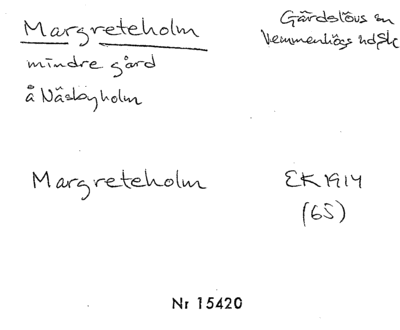 Margreteholm
Gärdslövs sn
Vemmenhögs hd, Sk
mindre gård
å Näsbyholm
Margreteholm
EK 1914
(65)
Nr 15420